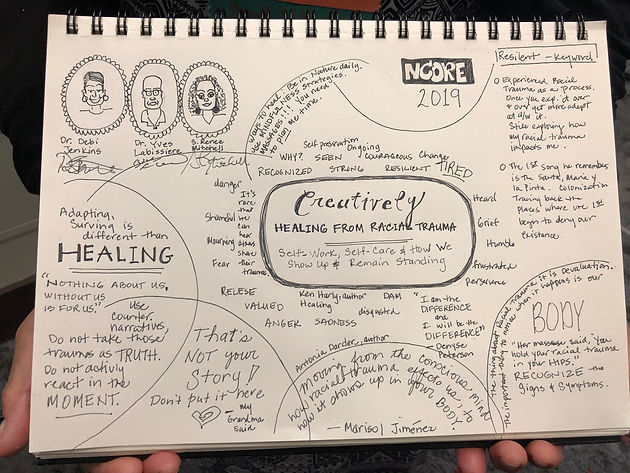 NCORE
2019
Dr. Debi
Jenkins
Dr. Yves
Labissiere
S. Renee
Mitchell
Ways to heal. Be in Nature daily.
Use MINDFULNESS strategies.
MASSAGES!! You need
to plan me time.
Resilent - Keyword
Experienced Racial
Trauma as a Process.
Once you exp. it over
& over get more adept
at d/w it.
Still exploring how
my racial trauma
impacts me.
The 1st song he remembers
is The Santa, Maria y
la Pinta. Colonization
Tracing back the
places where we 1st
begin to deny our
existence.
Self preservation
Ongoing
WHY? SEEN COURAGEOUS Change
RECOGNIZED STRONG RESILIENT TIRED
danger
Shameful
Mourning
Fear
It's
rare
that
we can
hear
others
share
their
trauma
Creatively
HEALING FROM RACIAL TRAUMA
Self-Work, Self-Care & How We
Show Up & Remain Standing
Heard
Grief
Humble
frustrated
perservance
Adapting,
Surving is
different than
HEALING
"NOTHING ABOUT US,
WITHOUT US
IS FOR US."
Use
counter
narratives.
Do not take those
traumas as TRUTH.
Do not activly
react in the
MOMENT.
RELESE
VALUED
ANGER SADNESS
Ken Hardy, author
Healing
DAM
disgusted
"I am the
DIFFERENCE
and
I will be the
DIFFERENCE"
- Denyse
Peterson
That's
NOT your
Story!
Don't put it here
- my
Grandma
said
Antonia Darder, author
moving from the conscious mind
how racial trauma effects us to
how it shows up in your BODY.
- Marisol Jiménez
The thing about Racial Trauma it is Devaluation.
when it happens is our
BODY
"Her masseuse said, "You
hold your racial trauma
in your HIPS."
RECOGNIZE the
Signs & Symptoms.